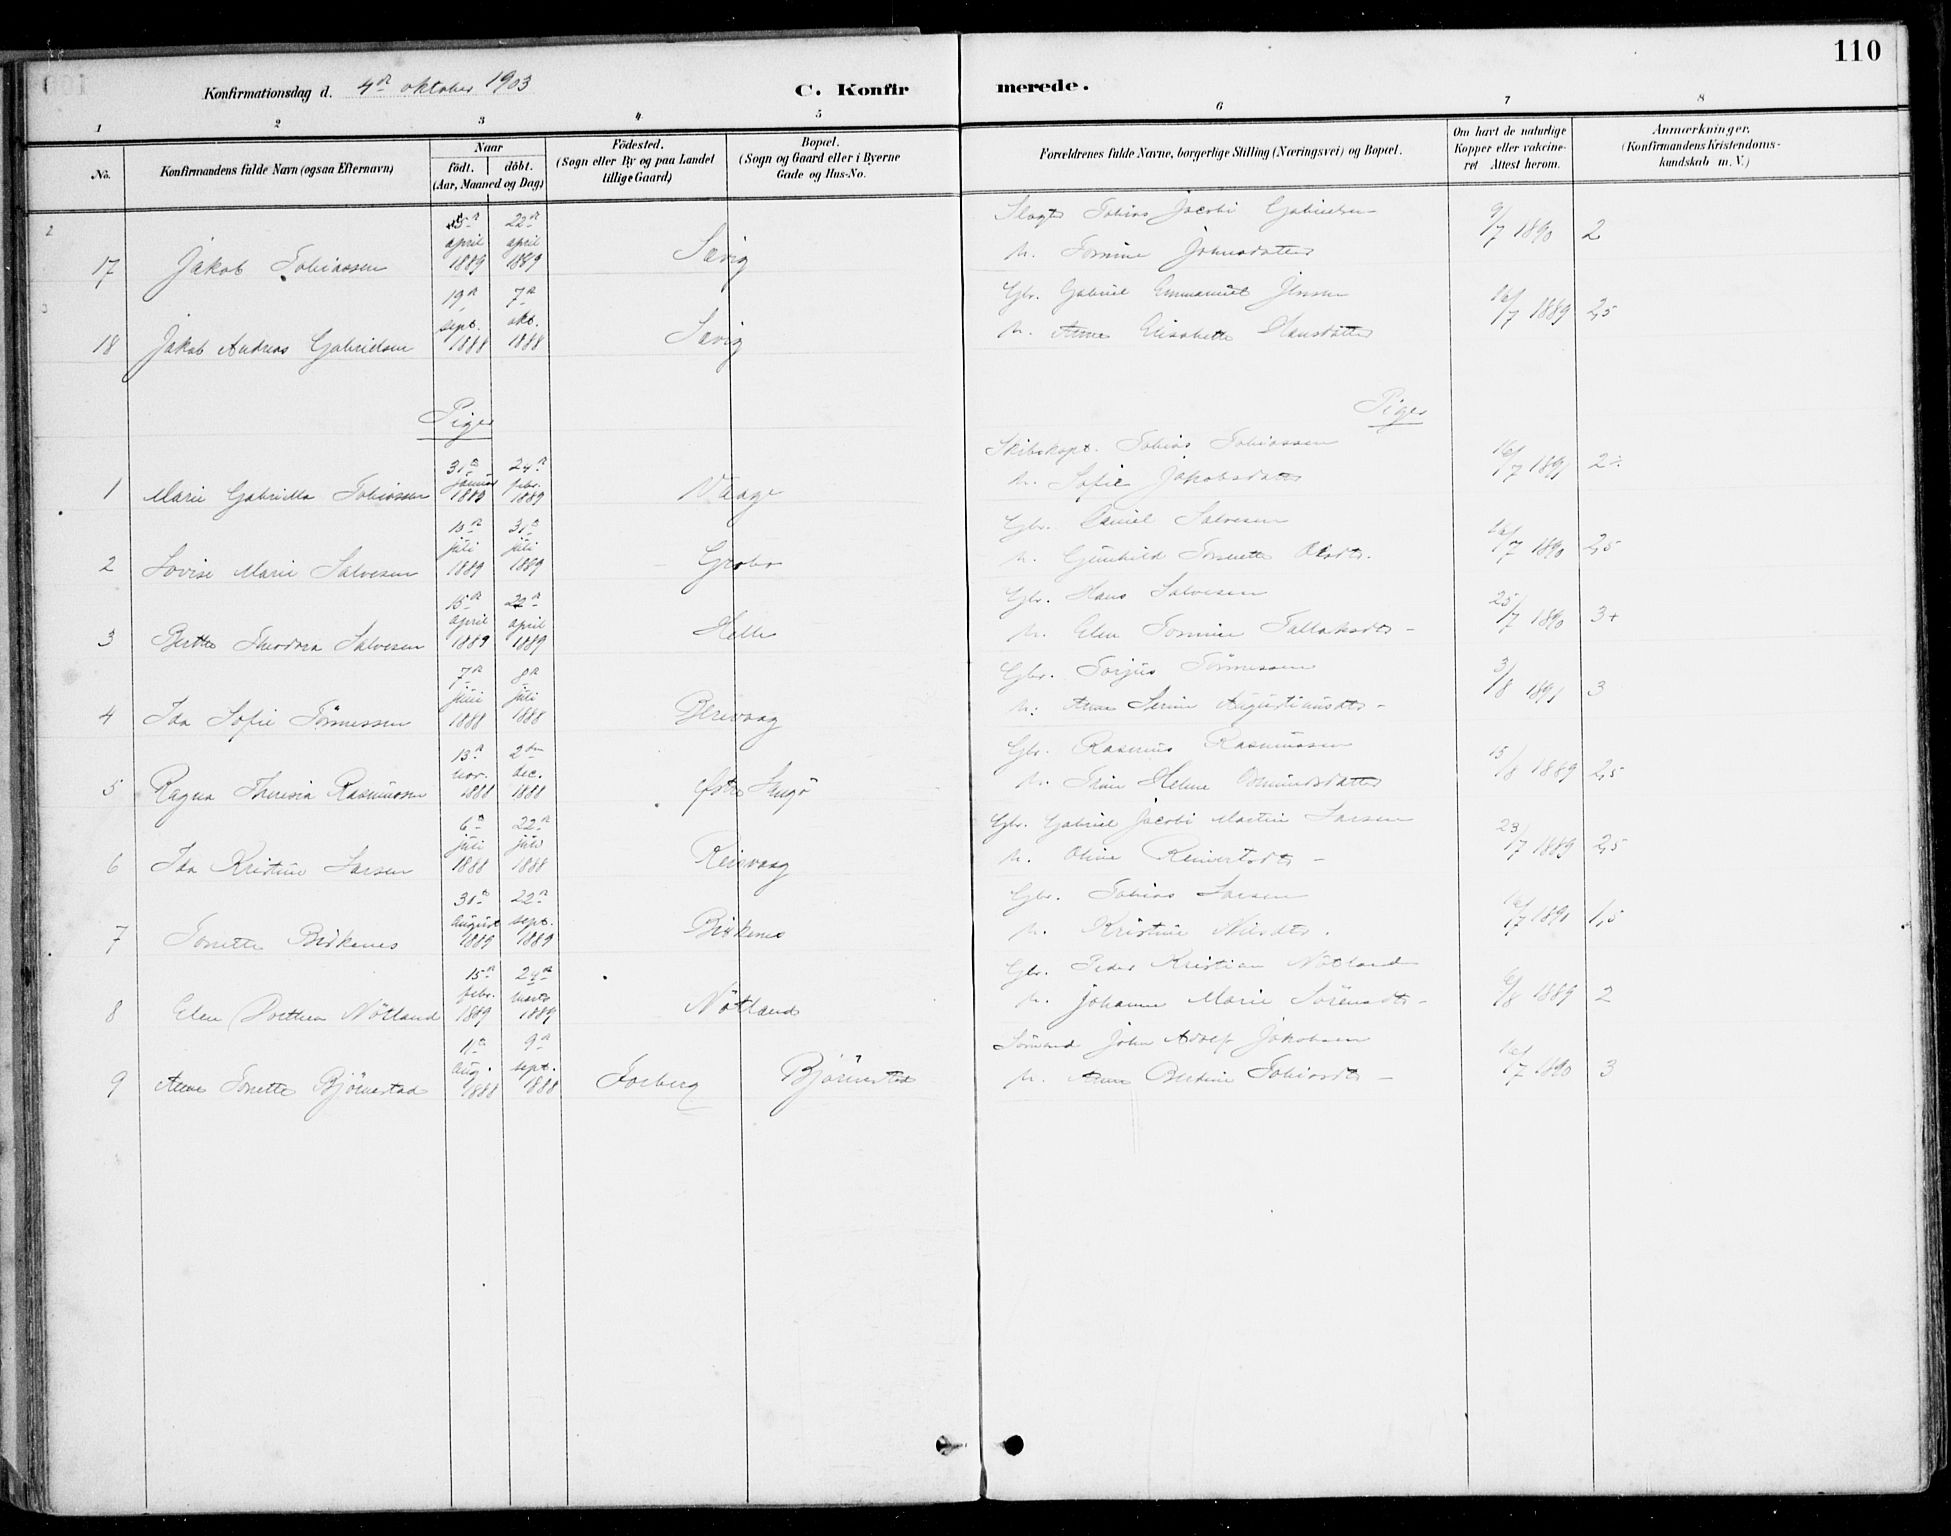 110
Konfirmationsdag d. 4de oktober 1903
C. Konfirmerede.
1 2 3 4 5 6 7 8
No.
Konfirmandens fulde Navn (ogsaa Efternavn)
Naar
födt. döbt.
(Aar, Maaned og Dag)
Födested.
(Sogn eller By og paa Landet
tillige Gaard)
Bopæl.
(Sogn og Gaard eller i Byerne
Gade og Hus-No.
Forældrenes fulde Navne, borgerlige Stilling (Næringsvei) og Bopæl.
Om havt de naturlige
Kopper eller vakcine-
ret Attest herom.
Anmærkninger.
(Konfirmandens Kristendoms-
kundskab m. V.)
2
17 Jakob Tobiassen 5te april 1889 22de april 1889 Sævig
Tobias Jacobi Gabrielsen
h. Tomine Johnsdatter
9/7 1890 2
3
18 Jakob Andreas Gabrielsen 19de sept. 1888 7de okt. 1888 Sævig
Gbr. Gabriel Emmanuel Jensen
h. Anne Elisabette Hansdatter
16/7 1889 2,5
Piger Piger
1 Marie Gabriella Tobiassen 30te januar 1889 24de febr. 1889 Vaage
Skibskapt. Tobias Tobiassen
h. Sofie Jakobsdatter
16/7 1891 2÷
2 Lovise Marie Salvesen juli 1889 juli 1889 Grobo
Gbr. Daniel Salvesen
h. Gunhild Tonette Olsdtr.
16/7 1890 2,5
3 Berthe Theodora Salvesen 15de april 1889 22de april 1889 Helle
Gbr. Hans Salvesen
h. Elen Tomine Tallaksdtr -
25/7 1890 3+
4 Ida Sofie Tönnessen 7de juni 1888 8de juli 1888
Gbr. Torjus Tönnessen
h. Anne Serine Augustinusdtr -
3/8 1891 3
5 Ragna Theresia Rasmussen 13de nov. 1888 2den dec. 1888
Gbr. Rasmus Rasmussen
h. Helene Osmundsdatter
13/8 1889 2,5
6 Ida Kristine Larsen 6te juli 1888 22de juli 1888 Reisvaag
Gbr. Gabriel Jacobi Martin Larsen
h. Oline Reinertsdtr -
23/7 1889 2,5
7 Tonette Birkenes 30te august 1889 22de sept. 1889 Birkenes
Gbr. Tobias Larsen
h. Kristine Nilsdtr.
16/7 1890 1,5
8 Elen Dorthea Nötland 15de febr. 1889 24de marts 1889 Nötland
Gbr. Peder Kristian Nötland
h. Johanne Marie Sörensdtr -
6/8 1889 2
9 Anne Tonette Björnestad 11te aug. 1888 9de sept. 1888 Forberg Björnestad
Sömand John Adolf Jakobsen
h. Anne Bertine Tobiasdtr -
16/7 1890 3